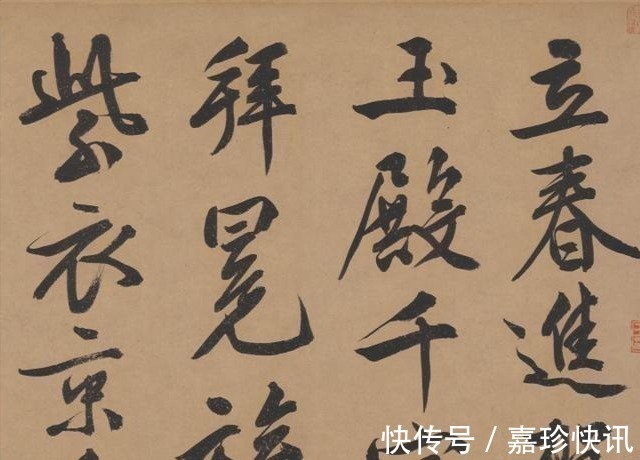 立春進
玉殿千
拜冕旒
紫衣京
快传号 / 嘉珍快讯